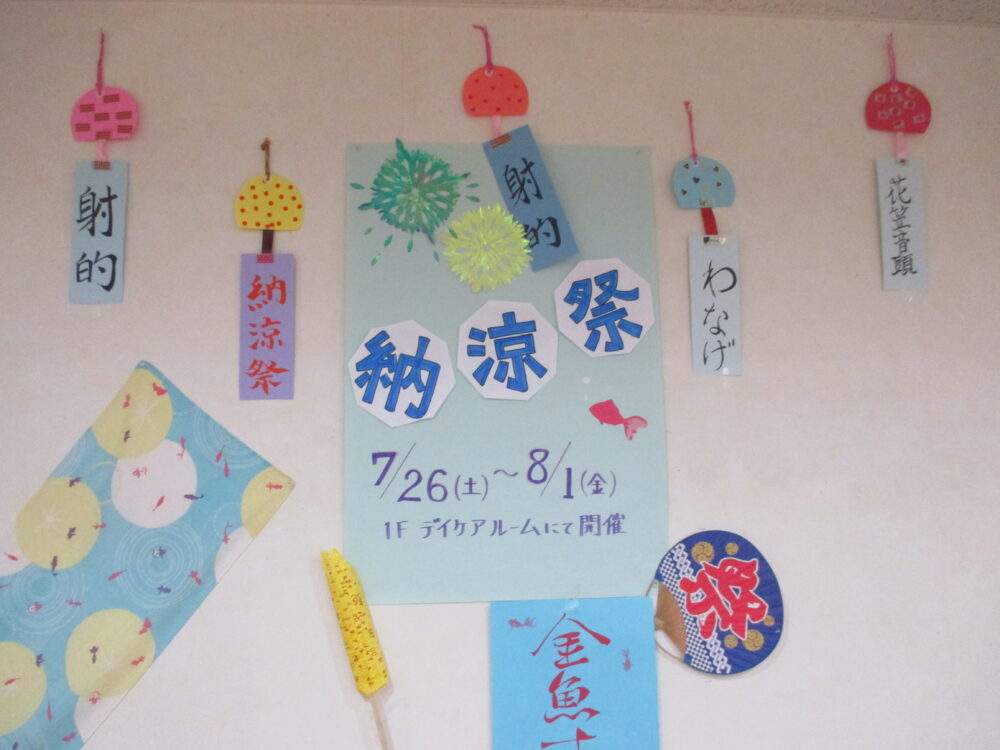 射的
納涼祭
射的
わなげ
花笠音頭
納涼祭
7/26(土)～8/1(金)
1F デイケアルームにて開催
祭
金魚す